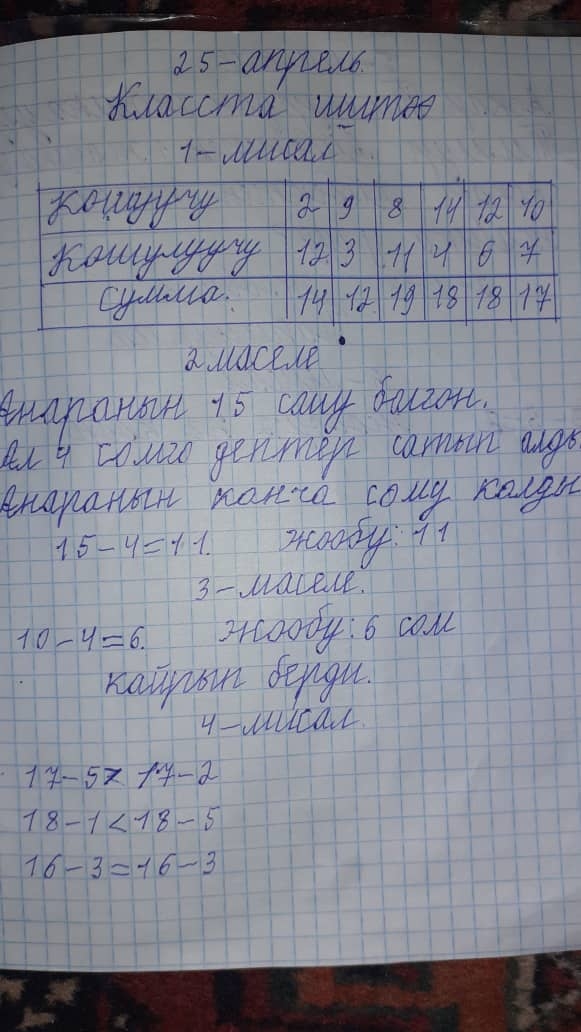 25-апрель.
Класста иштөө
1-мисал
Кошуучу 2 9 8 14 12 10
Кошулуучу 12 3 11 4 6 7
Сумма. 14 12 19 18 18 17
2 маселе
Анаранын 15 сому болгон.
Ал 4 сомго дептер сатып алды.
Анаранын канча сому калды
15-4=11. Жообу: 11
3-маселе.
10-4=6. Жообу: 6 сом
кайрып берди.
4-мисал.
17-5< 17-2
18-1<18-5
16-3=16-3